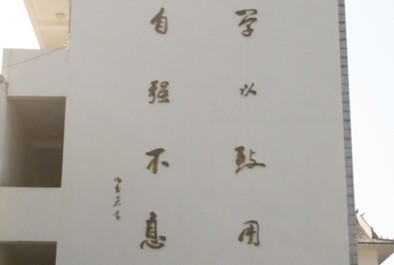 学以致用
自强不息